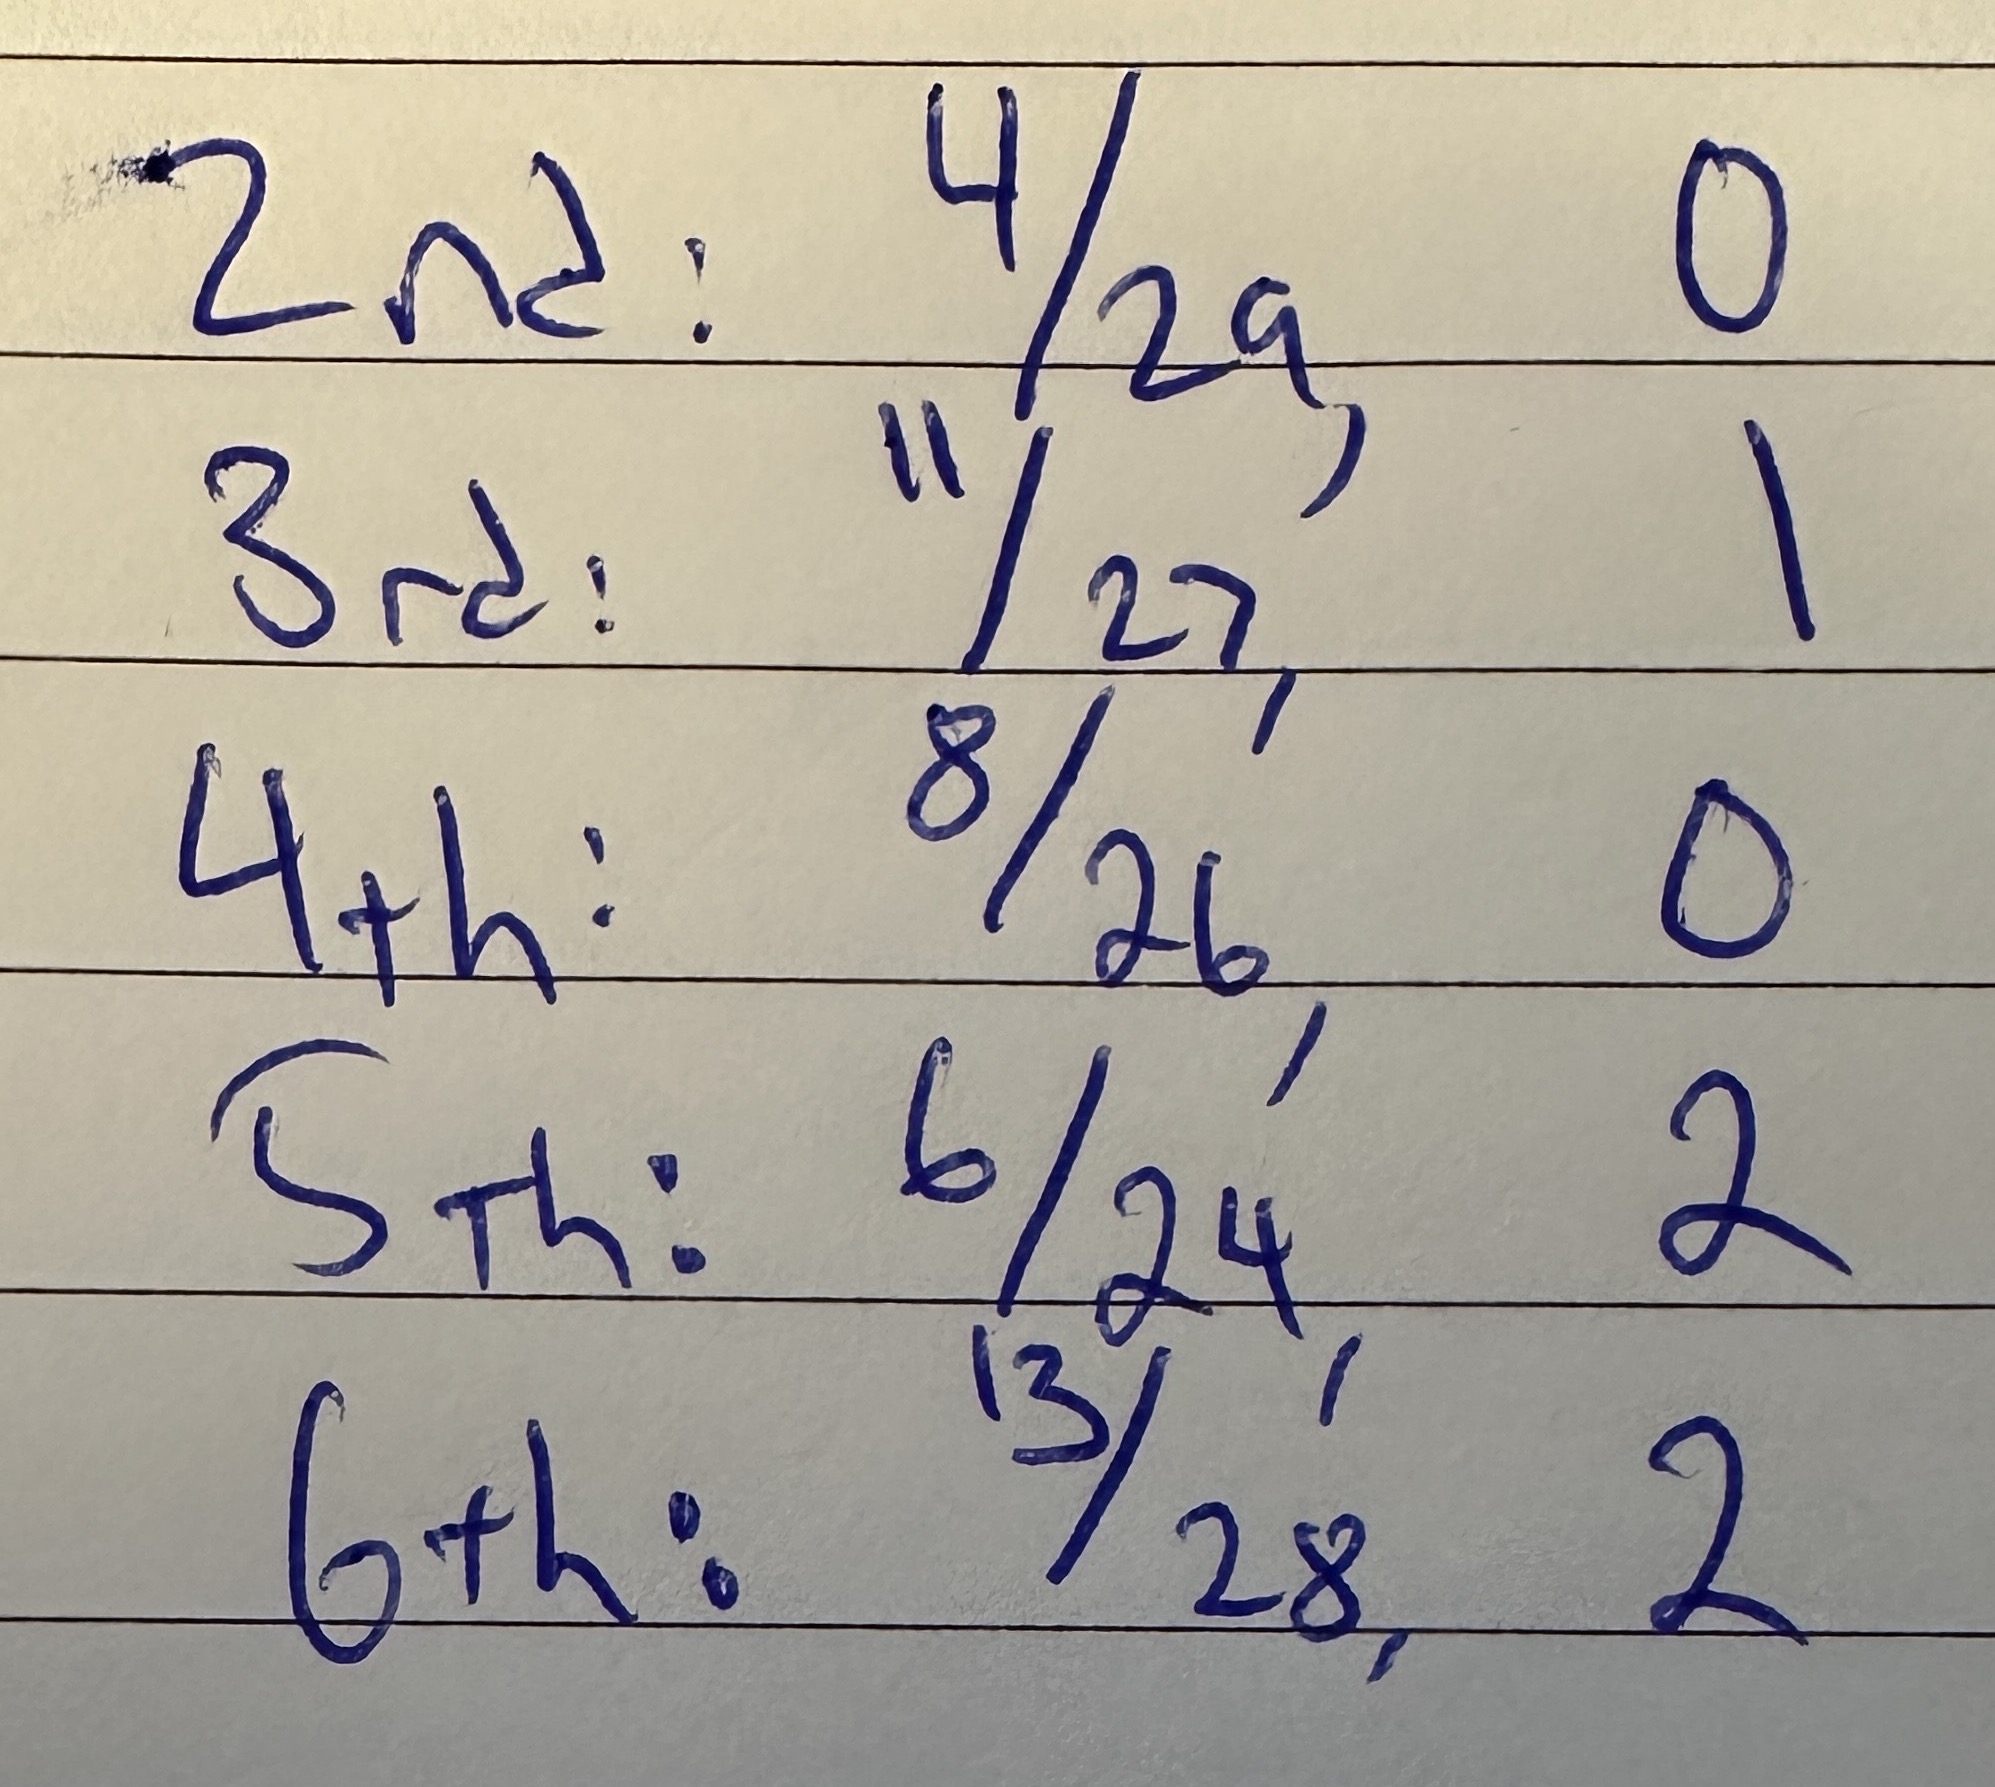 2nd: 4/29, 0
3rd: 11/27, 1
4th: 8/26, 0
5th: 6/24, 2
6th: 13/28, 2